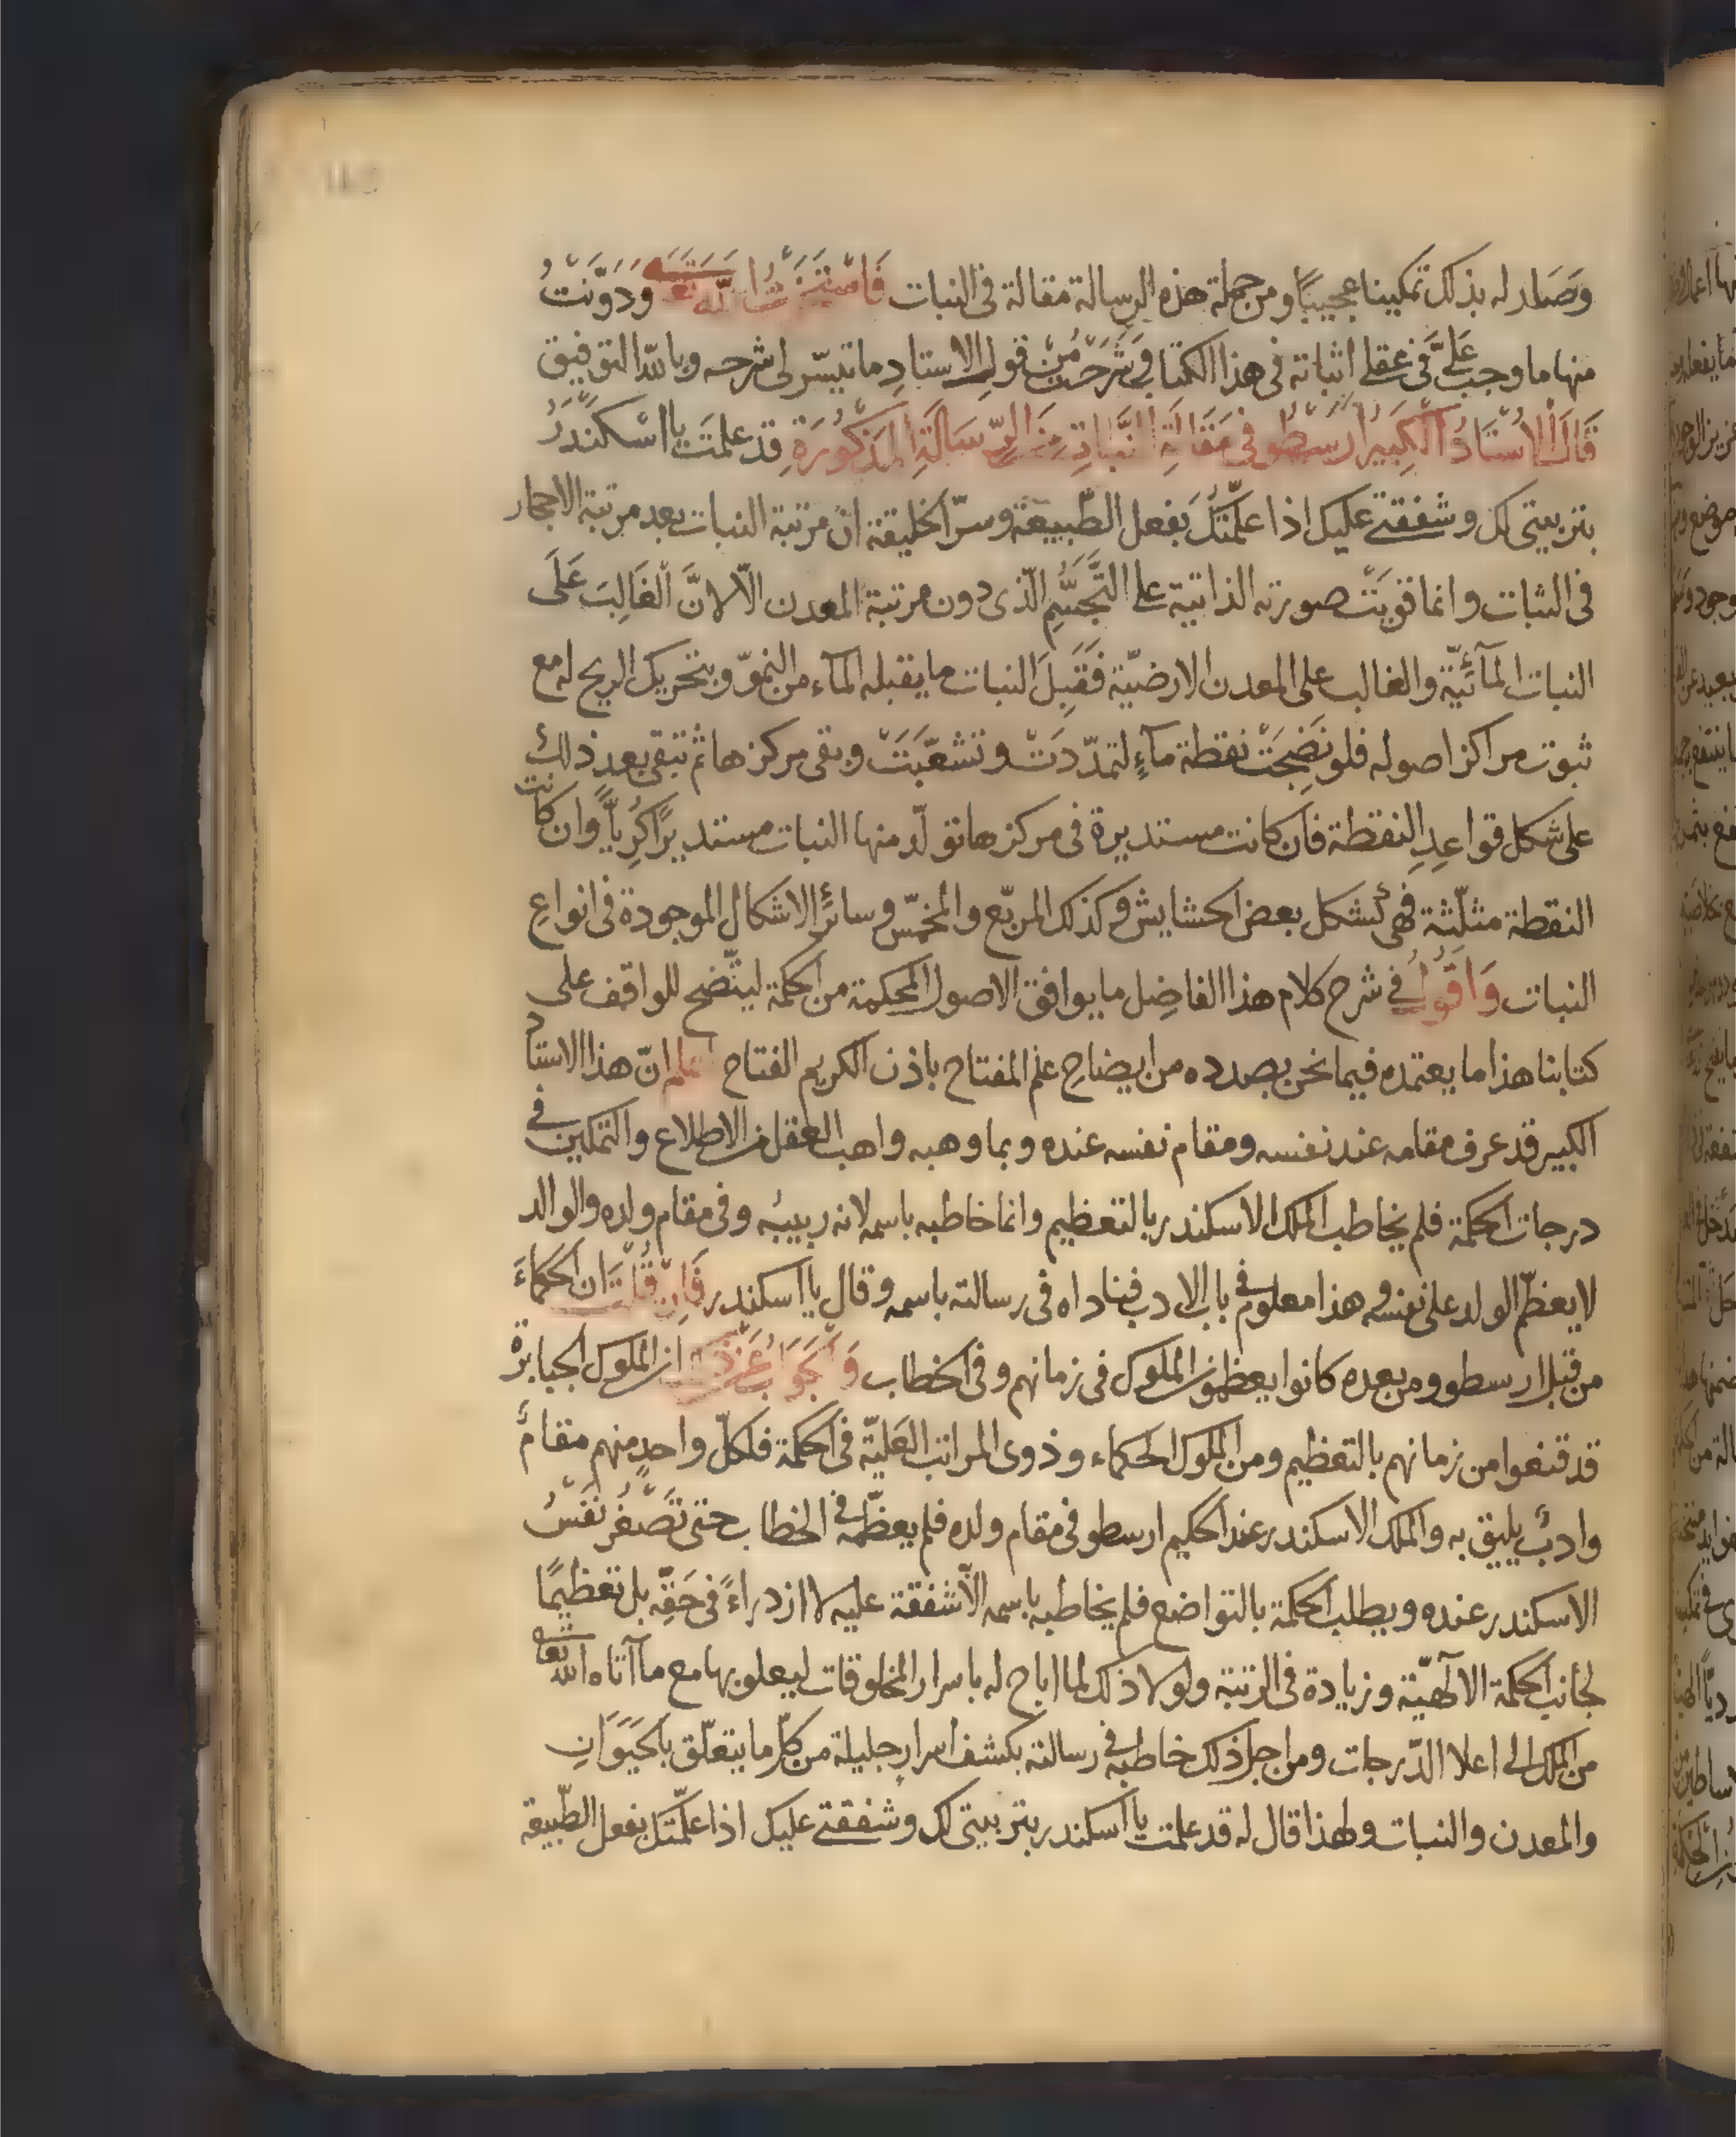 وَصَارله بذلك تمكينا عجيبًا ومن جملة هذه الرسالة مقالة في النبات فَاسْتَخَرْتُ اللّٰه تَعَالَى ودَوَّنْتُ
منها ما وجب عَلَيَّ في عقلي اثباته في هذا الكتاب وَشَرَحْتُ مِنْ قولِ الاستادِ ما تيسّر لي شرحه وبالله التوفيق
قَالَ الاُسْتَادُ الْكَبِيرُ ارسطو في مَقَالَةِ النَّبَاتِ مِنَ الرِّسَالَةِ المَذْكُورَةِ قد علمتَ يا اسْكَنْدَرُ
بتربيتي لك وشفقتي عليك اذا علّمتُكَ بفعل الطّبيعة وسرّ الخليقة انّ مرتبة النبات بعد مرتبة الاحجار
في الثبات وانما قوِيَتْ صورته الذاتية على التَّجَسُّمِ الّذي دون مرتبة المعدن الّا لانَّ الْغَالِبَ عَلَى
النبات المآئيّة والغالب على المعدن الارضيّة فَقَبِلَ النبات ما يقبله المآء من النموّ وبتحريك الريح له مع
ثبوت مراكز اصوله فلو نَضِجَتْ نقطة مآءٍ لتمدّدَتْ وتشعّبَتْ وبقى مركزها ثم تبقى بعد ذلك
على شكل قواعِدِ النقطة فان كانت مستديرة في مركزها تولّد منها النبات مستديرًا كُرِيًّا وان كانت
النقطة مثلّثة فهي كشكل بعض الحشايش وكذلك المربّع والمخمّس وسائر الاشكال الموجودة في انواعِ
النبات وَاَقُولُ في شرح كلام هذا الفاضِل ما يوافق الاصول المحكمة من الحكمة ليتّضح للواقف على
كتابنا هذا ما يعتمده فيما نحن بصدده من ايضاحِ علم المفتاح باذن الكريم الفتاح اعلم انّ هذا الاستاد
الكبير قد عرف مقامه عند نفسه ومقام نفسه عنده وبما وهبه واهب العقل من الاطلاع والتمكين في
درجات الحكمة فلم يخاطب الملك الاسكندر بالتعظيم وانما خاطبه باسمه لانه ربيبُه وفي مقام ولده والوالد
لا يعظّم الولد على نفسه وهذا معلوم في باب الادب فناداه في رسالته باسمه وقال يا اسكندر فَاِنْ قُلْتَ ان الحكماءَ
من قبل ارسطو ومن بعده كانوا يعظمون الملوك في زمانهم وفي الخطاب وَالْجَوَابُ عَنْ ذلك ان الملوك الجبابرة
قد قنعوا من زمانهم بالتعظيم ومن الملوك الحكماء وذوي المراتب العَليّة في الحكمة فلكلّ واحدٍ منهم مقامٌ
وادبٌ يليق به والملك الاسكندر عند الحكيم ارسطو في مقام ولده فلم يعظّمه في الخطاب حتى تَصْغُرَ نَفْسُ
الاسكندر عنده ويطلب الحكمة بالتواضع فلم يخاطبه باسمه الّا شفقة عليه لا ازدراءً في حَقِّه بل تعظيمًا
لجانب الحكمة الالٰهيّة وزيادة في الرتبة ولولا ذلك لما اباح له باسرار المخلوقات ليعلو بها مع ما آتاه الله تعا
من الملك الى اعلا الدّرجات ومن اجل ذلك خاطبه في رسالته بكشف اسرارٍ جليلة من كلّ ما يتعلّق بالحَيَوَانِ
والمعدن والنبات ولهذا قال له قد علمت يا اسكندر بتربيتي لك وشفقتي عليك اذا علّمتك بفعل الطّبيعة